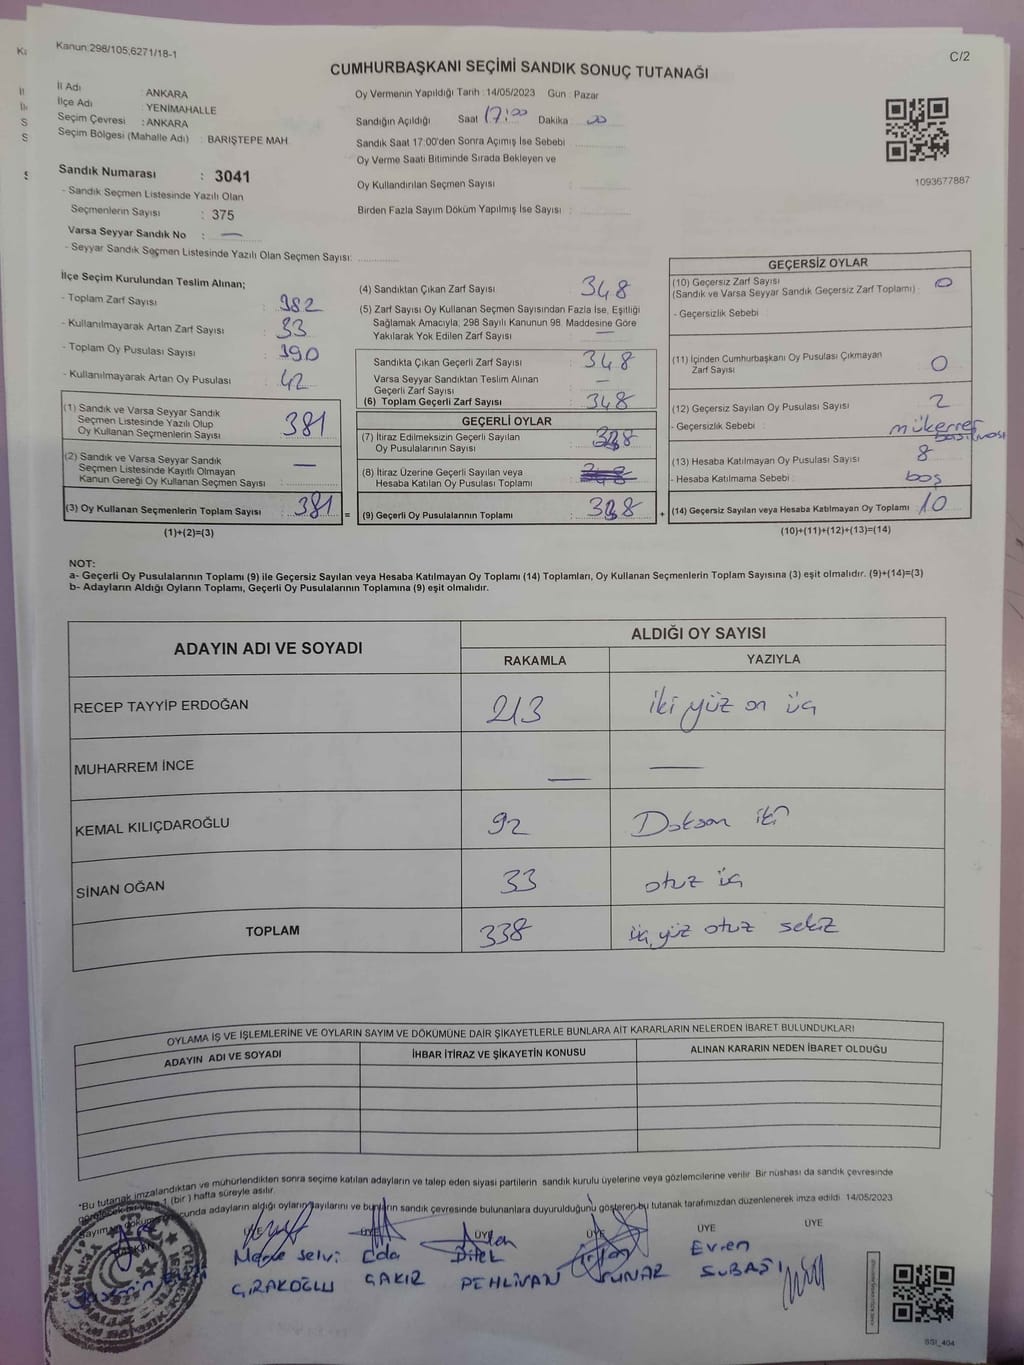 Kanun:298/105;6271/18-1
C/2
CUMHURBAŞKANI SEÇİMİ SANDIK SONUÇ TUTANAĞI
İl Adı : ANKARA
İlçe Adı : YENİMAHALLE
Seçim Çevresi : ANKARA
Seçim Bölgesi (Mahalle Adı) : BARIŞTEPE MAH.
Oy Vermenin Yapıldığı Tarih : 14/05/2023 Gün : Pazar
Sandığın Açıldığı Saat 17:00 Dakika 00
Sandık Saat 17:00'den Sonra Açımış İse Sebebi
Oy Verme Saati Bitiminde Sırada Bekleyen ve
Oy Kullandırılan Seçmen Sayısı :
Birden Fazla Sayım Döküm Yapılmış İse Sayısı :
1093677887
Sandık Numarası : 3041
- Sandık Seçmen Listesinde Yazılı Olan
Seçmenlerin Sayısı : 375
Varsa Seyyar Sandık No : —
- Seyyar Sandık Seçmen Listesinde Yazılı Olan Seçmen Sayısı:
İlçe Seçim Kurulundan Teslim Alınan;
- Toplam Zarf Sayısı : 382
- Kullanılmayarak Artan Zarf Sayısı : 33
- Toplam Oy Pusulası Sayısı : 390
- Kullanılmayarak Artan Oy Pusulası : 42
(1) Sandık ve Varsa Seyyar Sandık
Seçmen Listesinde Yazılı Olup
Oy Kullanan Seçmenlerin Sayısı : 381
(2) Sandık ve Varsa Seyyar Sandık
Seçmen Listesinde Kayıtlı Olmayan
Kanun Gereği Oy Kullanan Seçmen Sayısı : —
(3) Oy Kullanan Seçmenlerin Toplam Sayısı : 381 =
(1)+(2)=(3)
(4) Sandıktan Çıkan Zarf Sayısı : 348
(5) Zarf Sayısı Oy Kullanan Seçmen Sayısından Fazla İse, Eşitliği
Sağlamak Amacıyla; 298 Sayılı Kanunun 98. Maddesine Göre
Yakılarak Yok Edilen Zarf Sayısı : —
Sandıkta Çıkan Geçerli Zarf Sayısı : 348
Varsa Seyyar Sandıktan Teslim Alınan
Geçerli Zarf Sayısı : —
(6) Toplam Geçerli Zarf Sayısı : 348
GEÇERLİ OYLAR
(7) İtiraz Edilmeksizin Geçerli Sayılan
Oy Pusulalarının Sayısı : 338
(8) İtiraz Üzerine Geçerli Sayılan veya
Hesaba Katılan Oy Pusulası Toplamı :
(9) Geçerli Oy Pusulalarının Toplamı : 338 +
GEÇERSİZ OYLAR
(10) Geçersiz Zarf Sayısı
(Sandık ve Varsa Seyyar Sandık Geçersiz Zarf Toplamı) : 0
- Geçersizlik Sebebi :
(11) İçinden Cumhurbaşkanı Oy Pusulası Çıkmayan
Zarf Sayısı : 0
(12) Geçersiz Sayılan Oy Pusulası Sayısı : 2
- Geçersizlik Sebebi : mükerrer
basılması
(13) Hesaba Katılmayan Oy Pusulası Sayısı : 8
- Hesaba Katılmama Sebebi : boş
(14) Geçersiz Sayılan veya Hesaba Katılmayan Oy Toplamı : 10
(10)+(11)+(12)+(13)=(14)
NOT:
a- Geçerli Oy Pusulalarının Toplamı (9) ile Geçersiz Sayılan veya Hesaba Katılmayan Oy Toplamı (14) Toplamları, Oy Kullanan Seçmenlerin Toplam Sayısına (3) eşit olmalıdır. (9)+(14)=(3)
b- Adayların Aldığı Oyların Toplamı, Geçerli Oy Pusulalarının Toplamına (9) eşit olmalıdır.
ADAYIN ADI VE SOYADI
ALDIĞI OY SAYISI
RAKAMLA YAZIYLA
RECEP TAYYİP ERDOĞAN 213 iki yüz on üç
MUHARREM İNCE — —
KEMAL KILIÇDAROĞLU 92 Doksan iki
SİNAN OĞAN 33 otuz üç
TOPLAM 338 üç yüz otuz sekiz
OYLAMA İŞ VE İŞLEMLERİNE VE OYLARIN SAYIM VE DÖKÜMÜNE DAİR ŞİKAYETLERLE BUNLARA AİT KARARLARIN NELERDEN İBARET BULUNDUKLARI
ADAYIN ADI VE SOYADI İHBAR İTİRAZ VE ŞİKAYETİN KONUSU ALINAN KARARIN NEDEN İBARET OLDUĞU
*Bu tutanak imzalandıktan ve mühürlendikten sonra seçime katılan adayların ve talep eden siyasi partilerin sandık kurulu üyelerine veya gözlemcilerine verilir. Bir nüshası da sandık çevresinde
(bir) hafta süreyle asılır.
adayların aldığı oyların sayılarını ve bunların sandık çevresinde bulunanlara duyurulduğunu gösteren bu tutanak tarafımızdan düzenlenerek imza edildi. 14/05/2023
BAŞKAN ÜYE ÜYE ÜYE ÜYE ÜYE ÜYE
Eda
ÇAKIR
Dilek
PEHLİVAN
Evren
SUBAŞI
SSİ_404